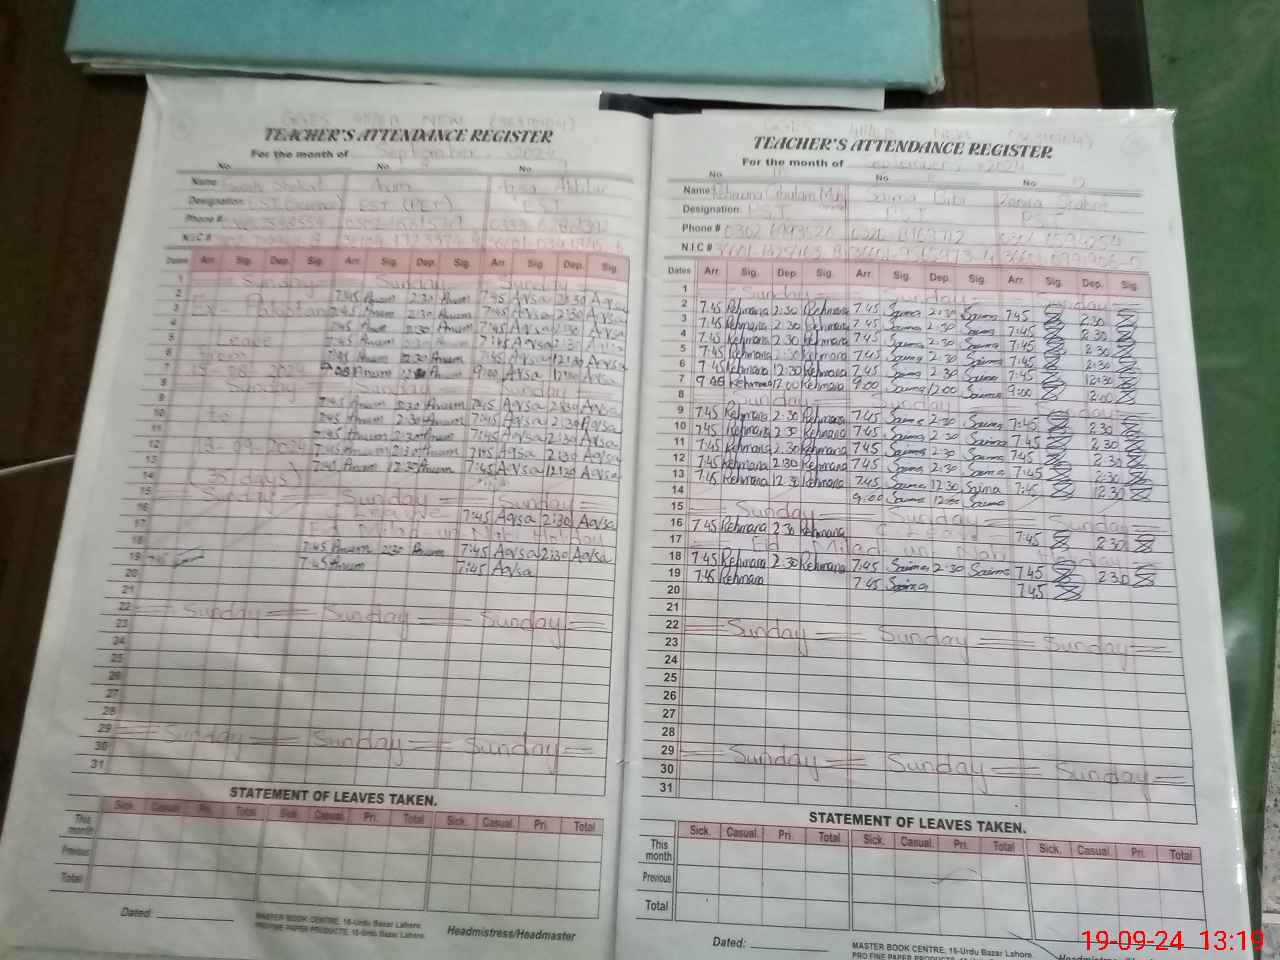 TEACHER'S ATTENDANCE REGISTER
For the month of September, 2024
No No No
Name Anum Aqsa
Designation EST
Phone #
N.I.C #
Dates Arr. Sig. Dep. Sig. Arr. Sig. Dep. Sig. Arr. Sig. Dep. Sig.
1 Sunday Sunday Sunday
2 7:45 Anum 2:30 Anum 7:45 Aqsa 2:30 Aqsa
3 Ex-Pakistan 7:45 Anum 2:30 Anum 7:45 Aqsa 2:30 Aqsa
4 7:45 Anum 2:30 Anum 7:45 Aqsa 2:30
5 Leave 7:45 Anum 2:30 Anum 7:45 Aqsa 2:30
6 from 7:45 Anum 12:30 Anum 7:45 Aqsa 12:30 Aqsa
7 Anum Anum 9:00 Aqsa 12:00 Aqsa
8 Sunday Sunday Sunday
9 7:45 Anum 2:30 Anum 7:45 Aqsa 2:30 Aqsa
10 to 7:45 Anum 2:30 Anum 7:45 Aqsa 2:30 Aqsa
11 7:45 Anum 2:30 Anum 7:45 Aqsa 2:30 Aqsa
12 -09-2024 7:45 Anum 2:30 Anum 7:45 Aqsa 2:30 Aqsa
13 7:45 Anum 12:30 Anum 7:45 Aqsa 12:30 Aqsa
14 (35 days)
15 Sunday Sunday Sunday
16 C Leave 7:45 Aqsa 2:30 Aqsa
17 Eid Milad un Nabi Holiday
18 7:45 Anum 2:30 Anum 7:45 Aqsa 2:30 Aqsa
19 7:45 7:45 Anum 7:45 Aqsa
20
21
22 Sunday Sunday Sunday
23
24
25
26
27
28
29 Sunday Sunday Sunday
30
31
STATEMENT OF LEAVES TAKEN.
Sick. Casual. Pri. Total Sick. Casual. Pri. Total Sick. Casual. Pri. Total
This month
Previous
Total
Dated:
MASTER BOOK CENTRE, 16-Urdu Bazar Lahore.
PRO FINE PAPER PRODUCTS, 16-Urdu Bazar Lahore.
Headmistress/Headmaster
TEACHER'S ATTENDANCE REGISTER
For the month of September, 2024
No No No
Name Rehmana Ghulam Saima Bibi
Designation PST PST PST
Phone #
N.I.C #
Dates Arr. Sig. Dep. Sig. Arr. Sig. Dep. Sig. Arr. Sig. Dep. Sig.
1 Sunday Sunday Sunday
2 7:45 Rehmana 2:30 Rehmana 7:45 Saima 2:30 Saima 7:45 2:30
3 7:45 Rehmana 2:30 Rehmana 7:45 Saima 2:30 Saima 7:45 2:30
4 7:45 Rehmana 2:30 Rehmana 7:45 Saima 2:30 Saima 7:45 2:30
5 7:45 Rehmana 2:30 Rehmana 7:45 Saima 2:30 Saima 7:45 2:30
6 7:45 Rehmana 12:30 Rehmana 7:45 Saima 2:30 Saima 7:45 12:30
7 9:00 Rehmana 12:00 Rehmana 9:00 Saima 12:00 Saima 9:00 12:00
8 Sunday Sunday Sunday
9 7:45 Rehmana 2:30 Rehmana 7:45 Saima 2:30 Saima 7:45 2:30
10 7:45 Rehmana 2:30 Rehmana 7:45 Saima 2:30 Saima 7:45 2:30
11 7:45 Rehmana 2:30 Rehmana 7:45 Saima 2:30 Saima 7:45 2:30
12 7:45 Rehmana 2:30 Rehmana 7:45 Saima 2:30 Saima 7:45 2:30
13 7:45 Rehmana 12:30 Rehmana 7:45 Saima 12:30 Saima 7:45 12:30
14 9:00 Saima 12:00 Saima
15 Sunday Sunday Sunday
16 7:45 Rehmana 2:30 Rehmana C Leave 7:45 2:30
17 Eid Milad un Nabi Holiday
18 7:45 Rehmana 2:30 Rehmana 7:45 Saima 2:30 Saima 7:45 2:30
19 7:45 Rehmana 7:45 Saima 7:45
20
21
22 Sunday Sunday Sunday
23
24
25
26
27
28
29 Sunday Sunday Sunday
30
31
STATEMENT OF LEAVES TAKEN.
Sick. Casual. Pri. Total Sick. Casual. Pri. Total Sick. Casual. Pri. Total
This month
Previous
Total
Dated:
MASTER BOOK CENTRE, 16-Urdu Bazar Lahore.
19-09-24 13:19